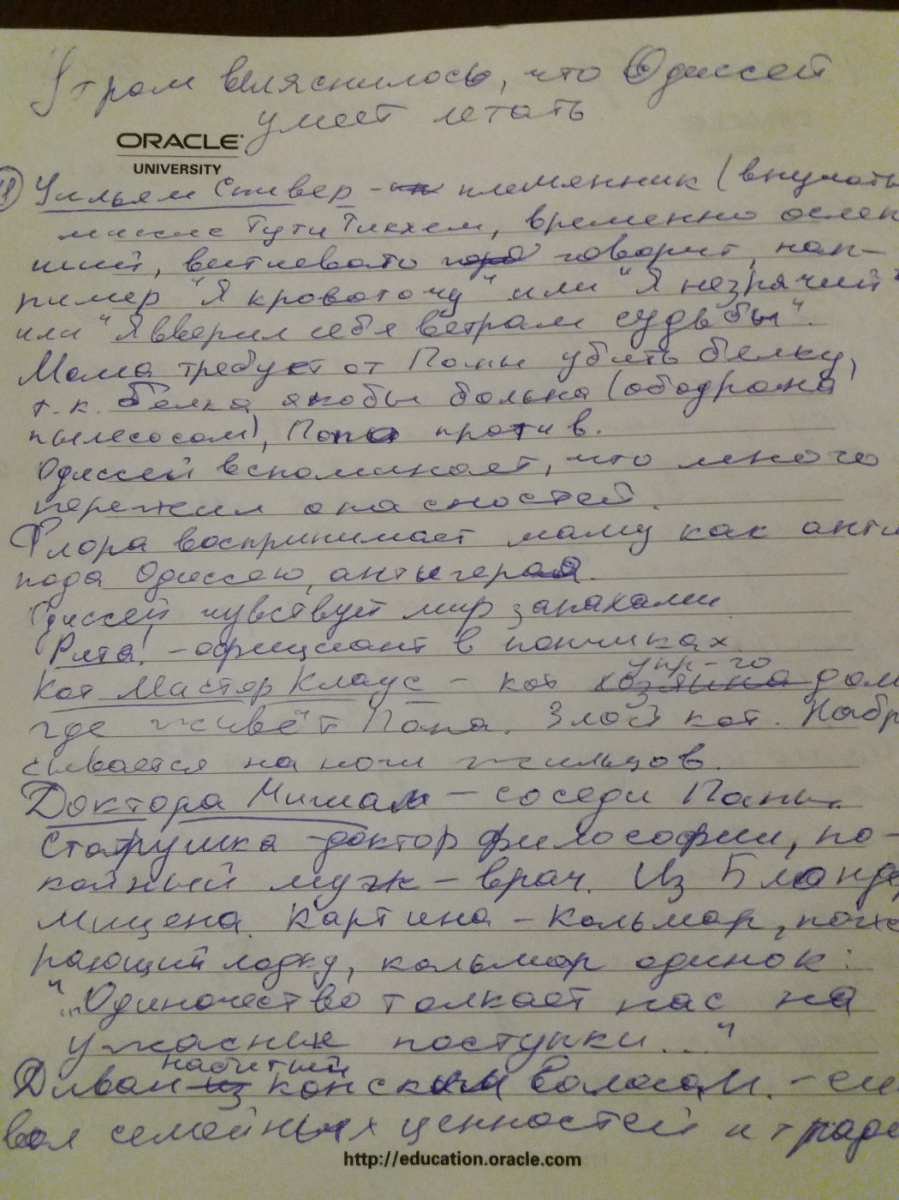 Утром выяснилось, что Одиссей
умеет летать
ORACLE
UNIVERSITY
18 Уильям Спивер - племянник (внучаты
миссис Тути Тикхем, временно ослеп
ший, витиевато говорит, нап-
ример "Я кровоточу" или "Я незрячий"
или "Я вверил себя ветрам судьбы".
Мама требует от Папы убить белку,
т.к. белка якобы больна (ободрана
пылесосом), Папа против.
Одиссей вспоминает, что много
пережил опасностей.
Флора воспринимает маму как анти
пода Одиссею, антигероя.
Одиссей чувствует мир запахами
Рита! - официант в пончиках.
упр-го
Кот Мастер Клаус - кот хозяина дом
где живёт Папа. Злой кот. Набр
сывается на ноги жильцов.
Доктора Мишам - соседи Папы.
Старушка - доктор философии, по-
койный муж - врач. Из Бланде
мицена. Картина - Кальмар, пож
рающий лодку, кальмар одинок:
"...Одиночество толкает нас на
ужасные поступки..."
набитый
Диван из конским волосом. - сим
вол семейных ценностей и тради
http://education.oracle.com